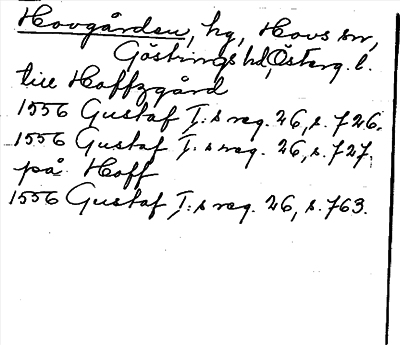 Hovgården, hg, Hovs sn,
Göstrings hd, Österg. l.
till Hoffzgård
1556 Gustaf I:s reg. 26, s. 726.
1556 Gustaf I:s reg. 26, s. 727.
på Hoff
1556 Gustaf I:s reg. 26, s. 763.